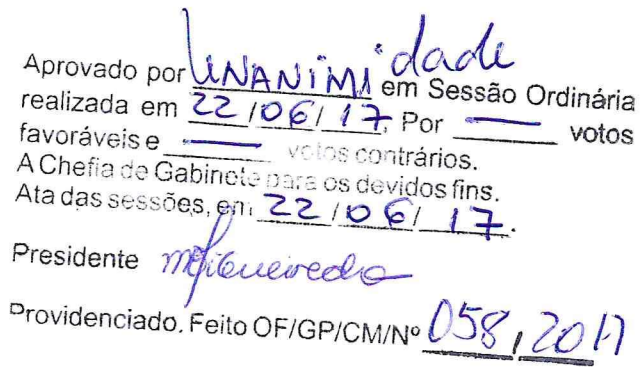 Aprovado por UNANIMIdade em Sessão Ordinária
realizada em 22/06/17, Por ——— votos
favoráveis e ——— votos contrários.
A Chefia de Gabinete para os devidos fins.
Ata das sessões, em 22/06/17.
Presidente mfigueiredo
Providenciado. Feito OF/GP/CM/Nº 058, 2017